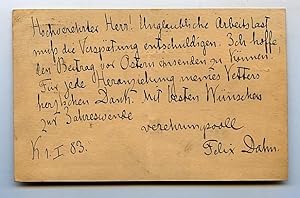 Hochverehrter Herr! Unglaubliche Arbeitslast
muß die Verspätung entschuldigen. Ich hoffe
den Beitrag vor Ostern einsenden zu können!
Für jede Heranziehung meines Vetters
herzlichen Dank. Mit besten Wünschen
zur Jahreswende
verehrungsvoll
K 1. I 83. Felix Dahn.